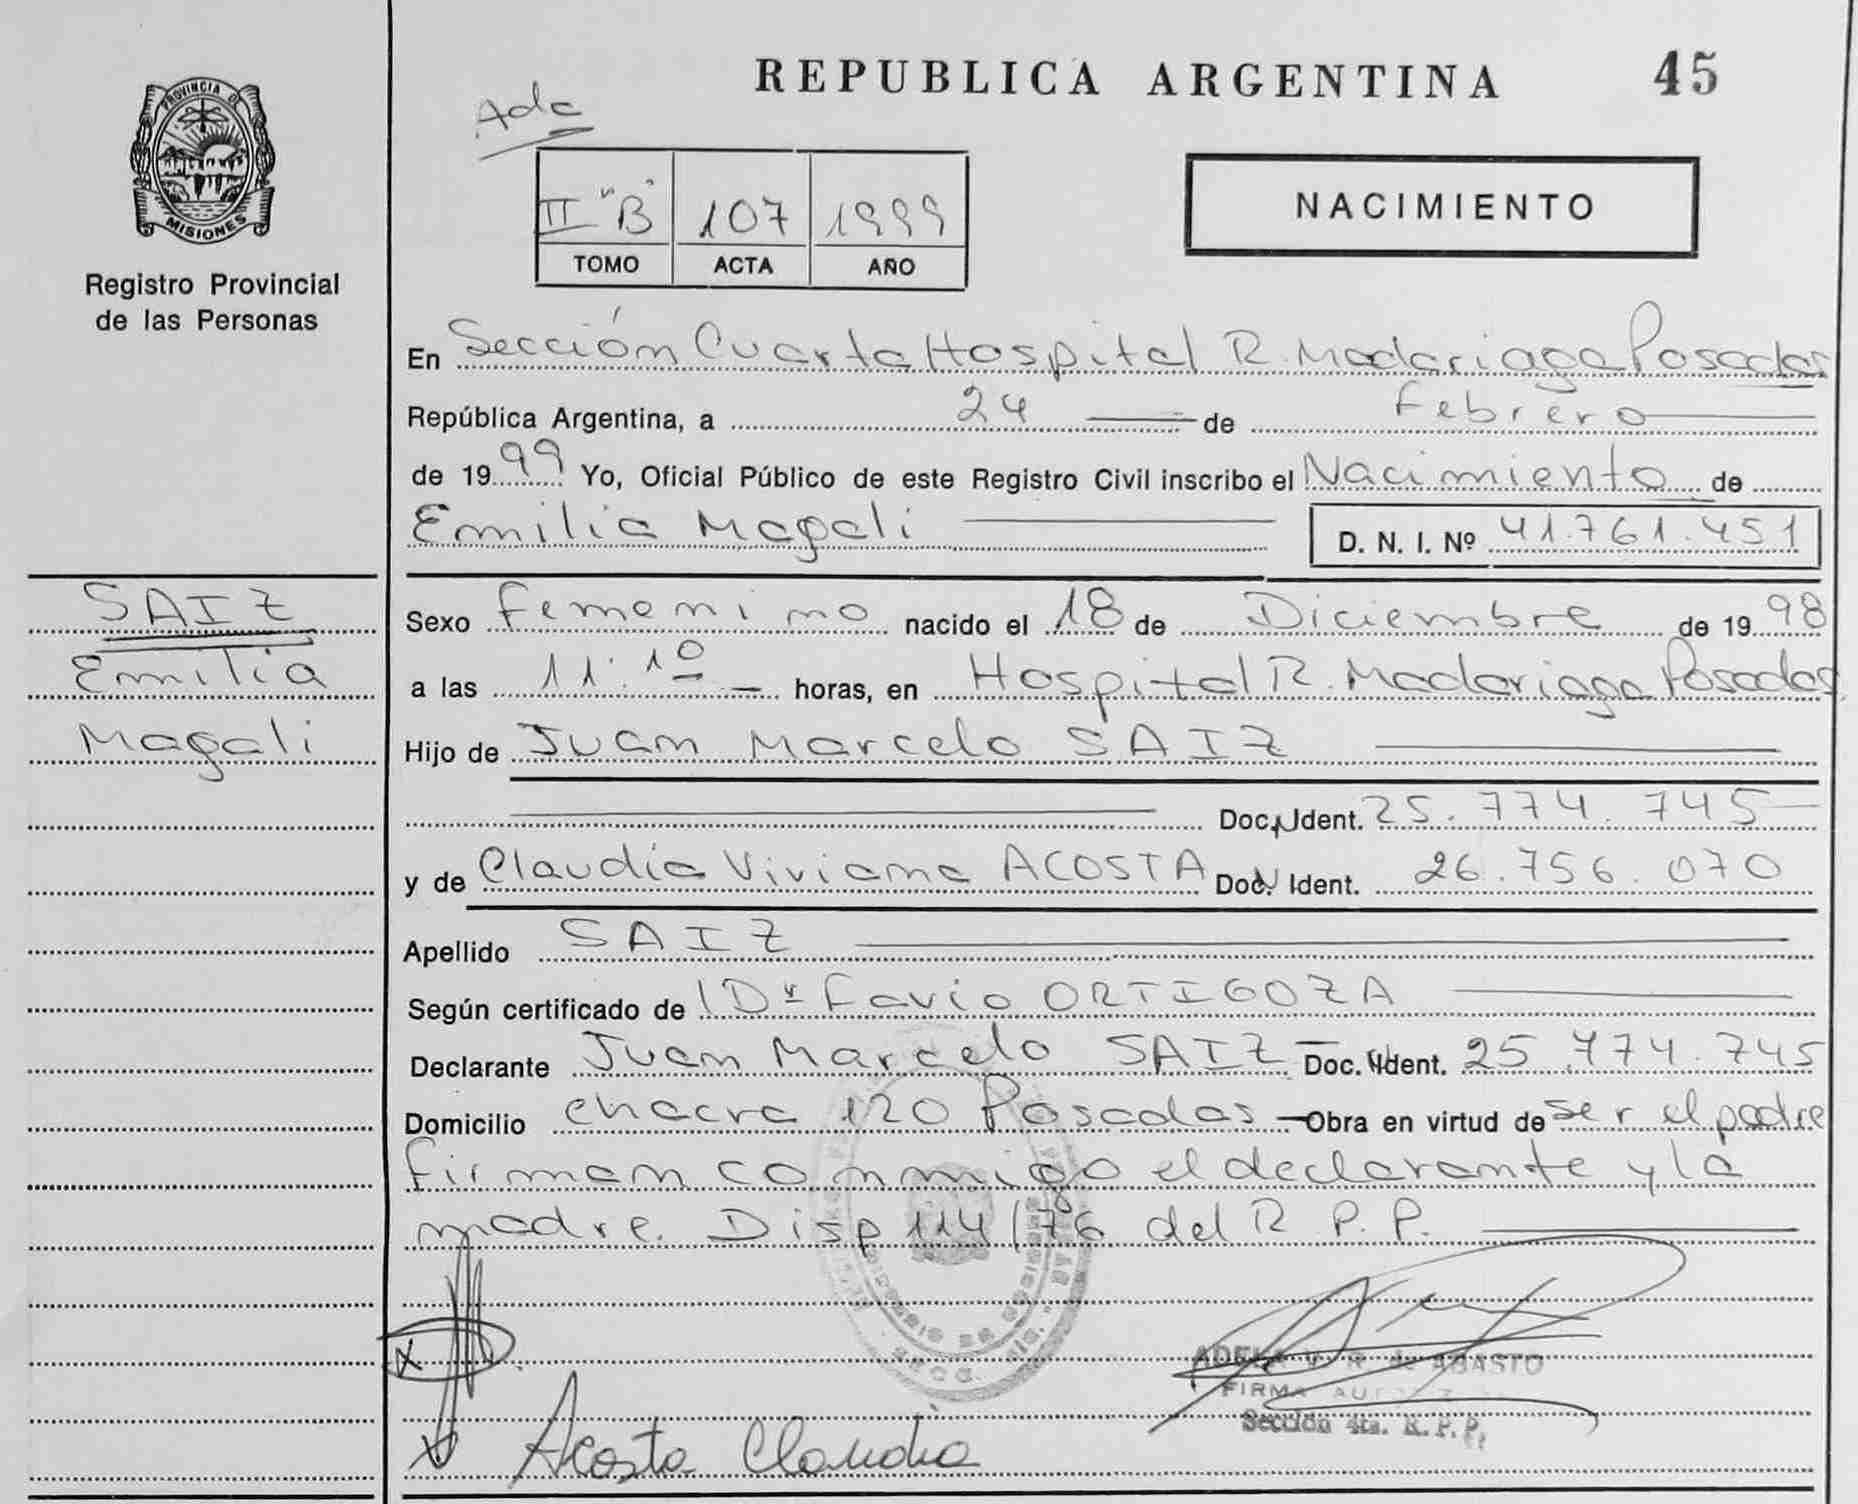 REPUBLICA ARGENTINA 45
PROVINCIA D
MISIONES
Registro Provincial
de las Personas
Adc
II "B" 107 1999
TOMO ACTA AÑO
NACIMIENTO
En Sección Cuarta Hospital R. Madariaga Posadas
República Argentina, a 24 de Febrero
de 1999 Yo, Oficial Público de este Registro Civil inscribo el Nacimiento de
Emilia Magali D. N. I. Nº 41.761.451
SAIZ
Emilia
Magali
Sexo Femenino nacido el 18 de Diciembre de 1998
a las 11:10 horas, en Hospital R. Madariaga Posadas
Hijo de Juan Marcelo SAIZ
Doc. Ident. 25.774.745
y de Claudia Viviana ACOSTA Doc. Ident. 26.756.070
Apellido SAIZ
Según certificado de Dr Favio ORTIGOZA
Declarante Juan Marcelo SAIZ Doc. Ident. 25.774.745
Domicilio chacra 120 Posadas Obra en virtud de ser el padre
Firman conmigo el declarante y la
madre. Disp 114/76 del R P. P.
ADELA V. R. de ABASTO
FIRMA
Sección 4ta. R. P. P.
Acosta Claudia